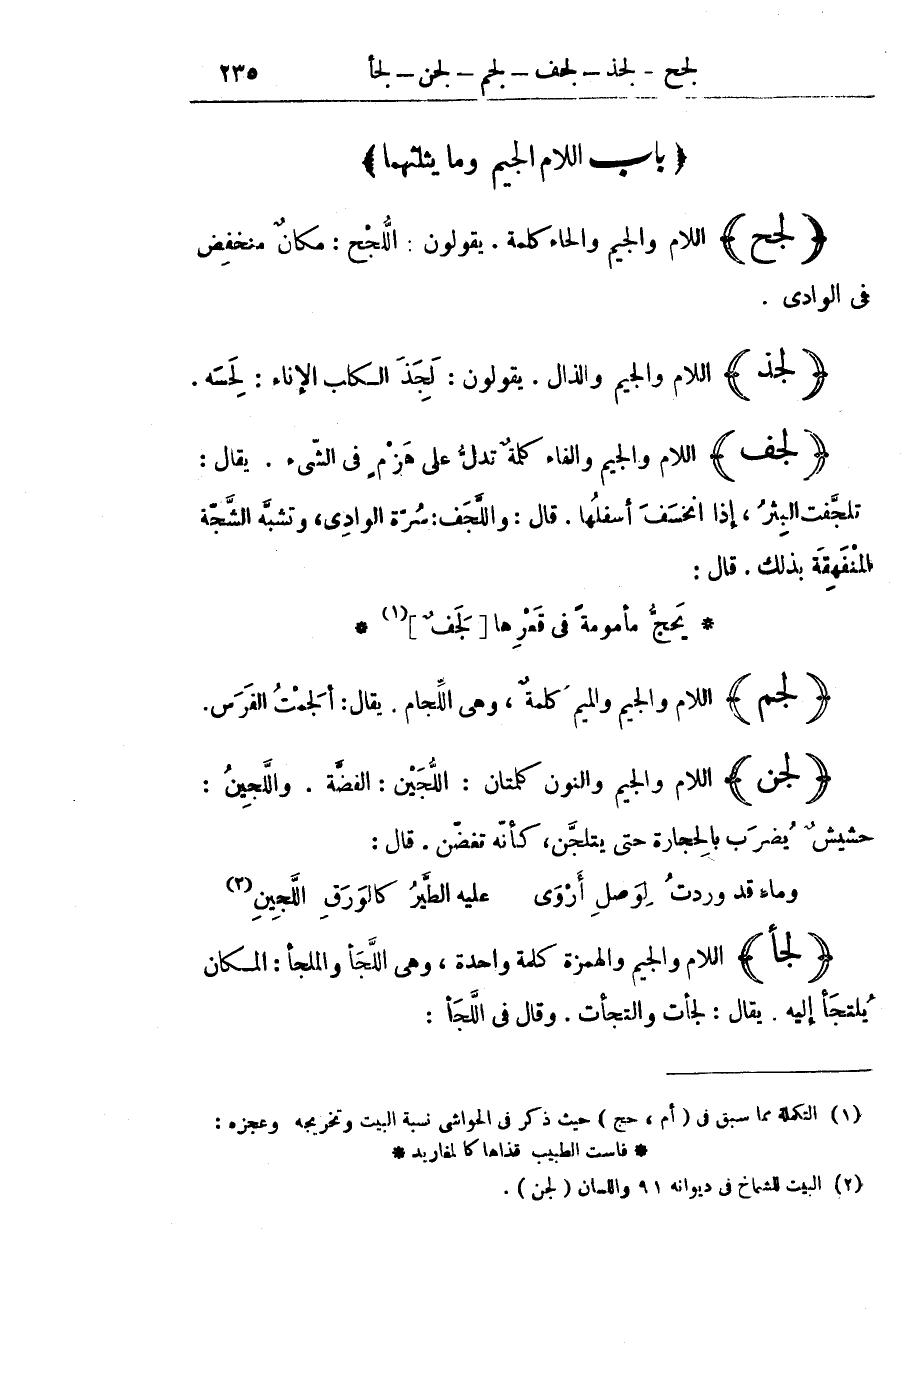 لجح - لجذ - لجف - لجم - لجن - لجأ ٢٣٥
﴿ باب اللام الجيم وما يثلثهما ﴾
﴿ لجح ﴾ اللام والجيم والحاء كلمة . يقولون : اللُّجْح : مكانٌ منخفِض
فى الوادى .
﴿ لجذ ﴾ اللام والجيم والذال . يقولون : لَجِذَ الكلب الإناء : لَحِسَه .
﴿ لجف ﴾ اللام والجيم والفاء كلمةٌ تدلُّ على هَزْمٍ فى الشّىء . يقال :
تلجَّفت البِئرُ ، إذا انخسَفَ أسفلُها . قال : واللَّجَف : سُرّة الوادِى، وتشبَّه الشَّجّة
المُنْفَهِقَة بذلك . قال :
* يَحجُّ مأمومةً فى قَعْرِها [ لَجَفٌ ](١) *
﴿ لجم ﴾ اللام والجيم والميم كلمةٌ ، وهى اللِّجام . يقال: ألجمْتُ الفَرَس.
﴿ لجن ﴾ اللام والجيم والنون كلمتان : اللُّجَيْن : الفضَّة . واللَّجِينُ :
حشيشٌ يُضرَب بالحِجارة حتى يتلجَّن، كأنّه تغضّن . قال :
وماء قد وردتُ لِوَصلِ أَرْوَى عليه الطَّيْرُ كالوَرَقِ اللَّجِينِ(٢)
﴿ لجأ ﴾ اللام والجيم والهمزة كلمة واحدة ، وهى اللَّجَأ والملجأ : المكان
يُلتجَأ إليه . يقال : لجأت والتجأت . وقال فى اللَّجَأ :
(١) التكملة مما سبق فى ( أم ، حج ) حيث ذكر فى الحواشى نسبة البيت وتخريجه وعجزه :
* فاست الطبيب قذاها كالمغاريد *
(٢) البيت للشماخ فى ديوانه ٩١ واللسان ( لجن ) .